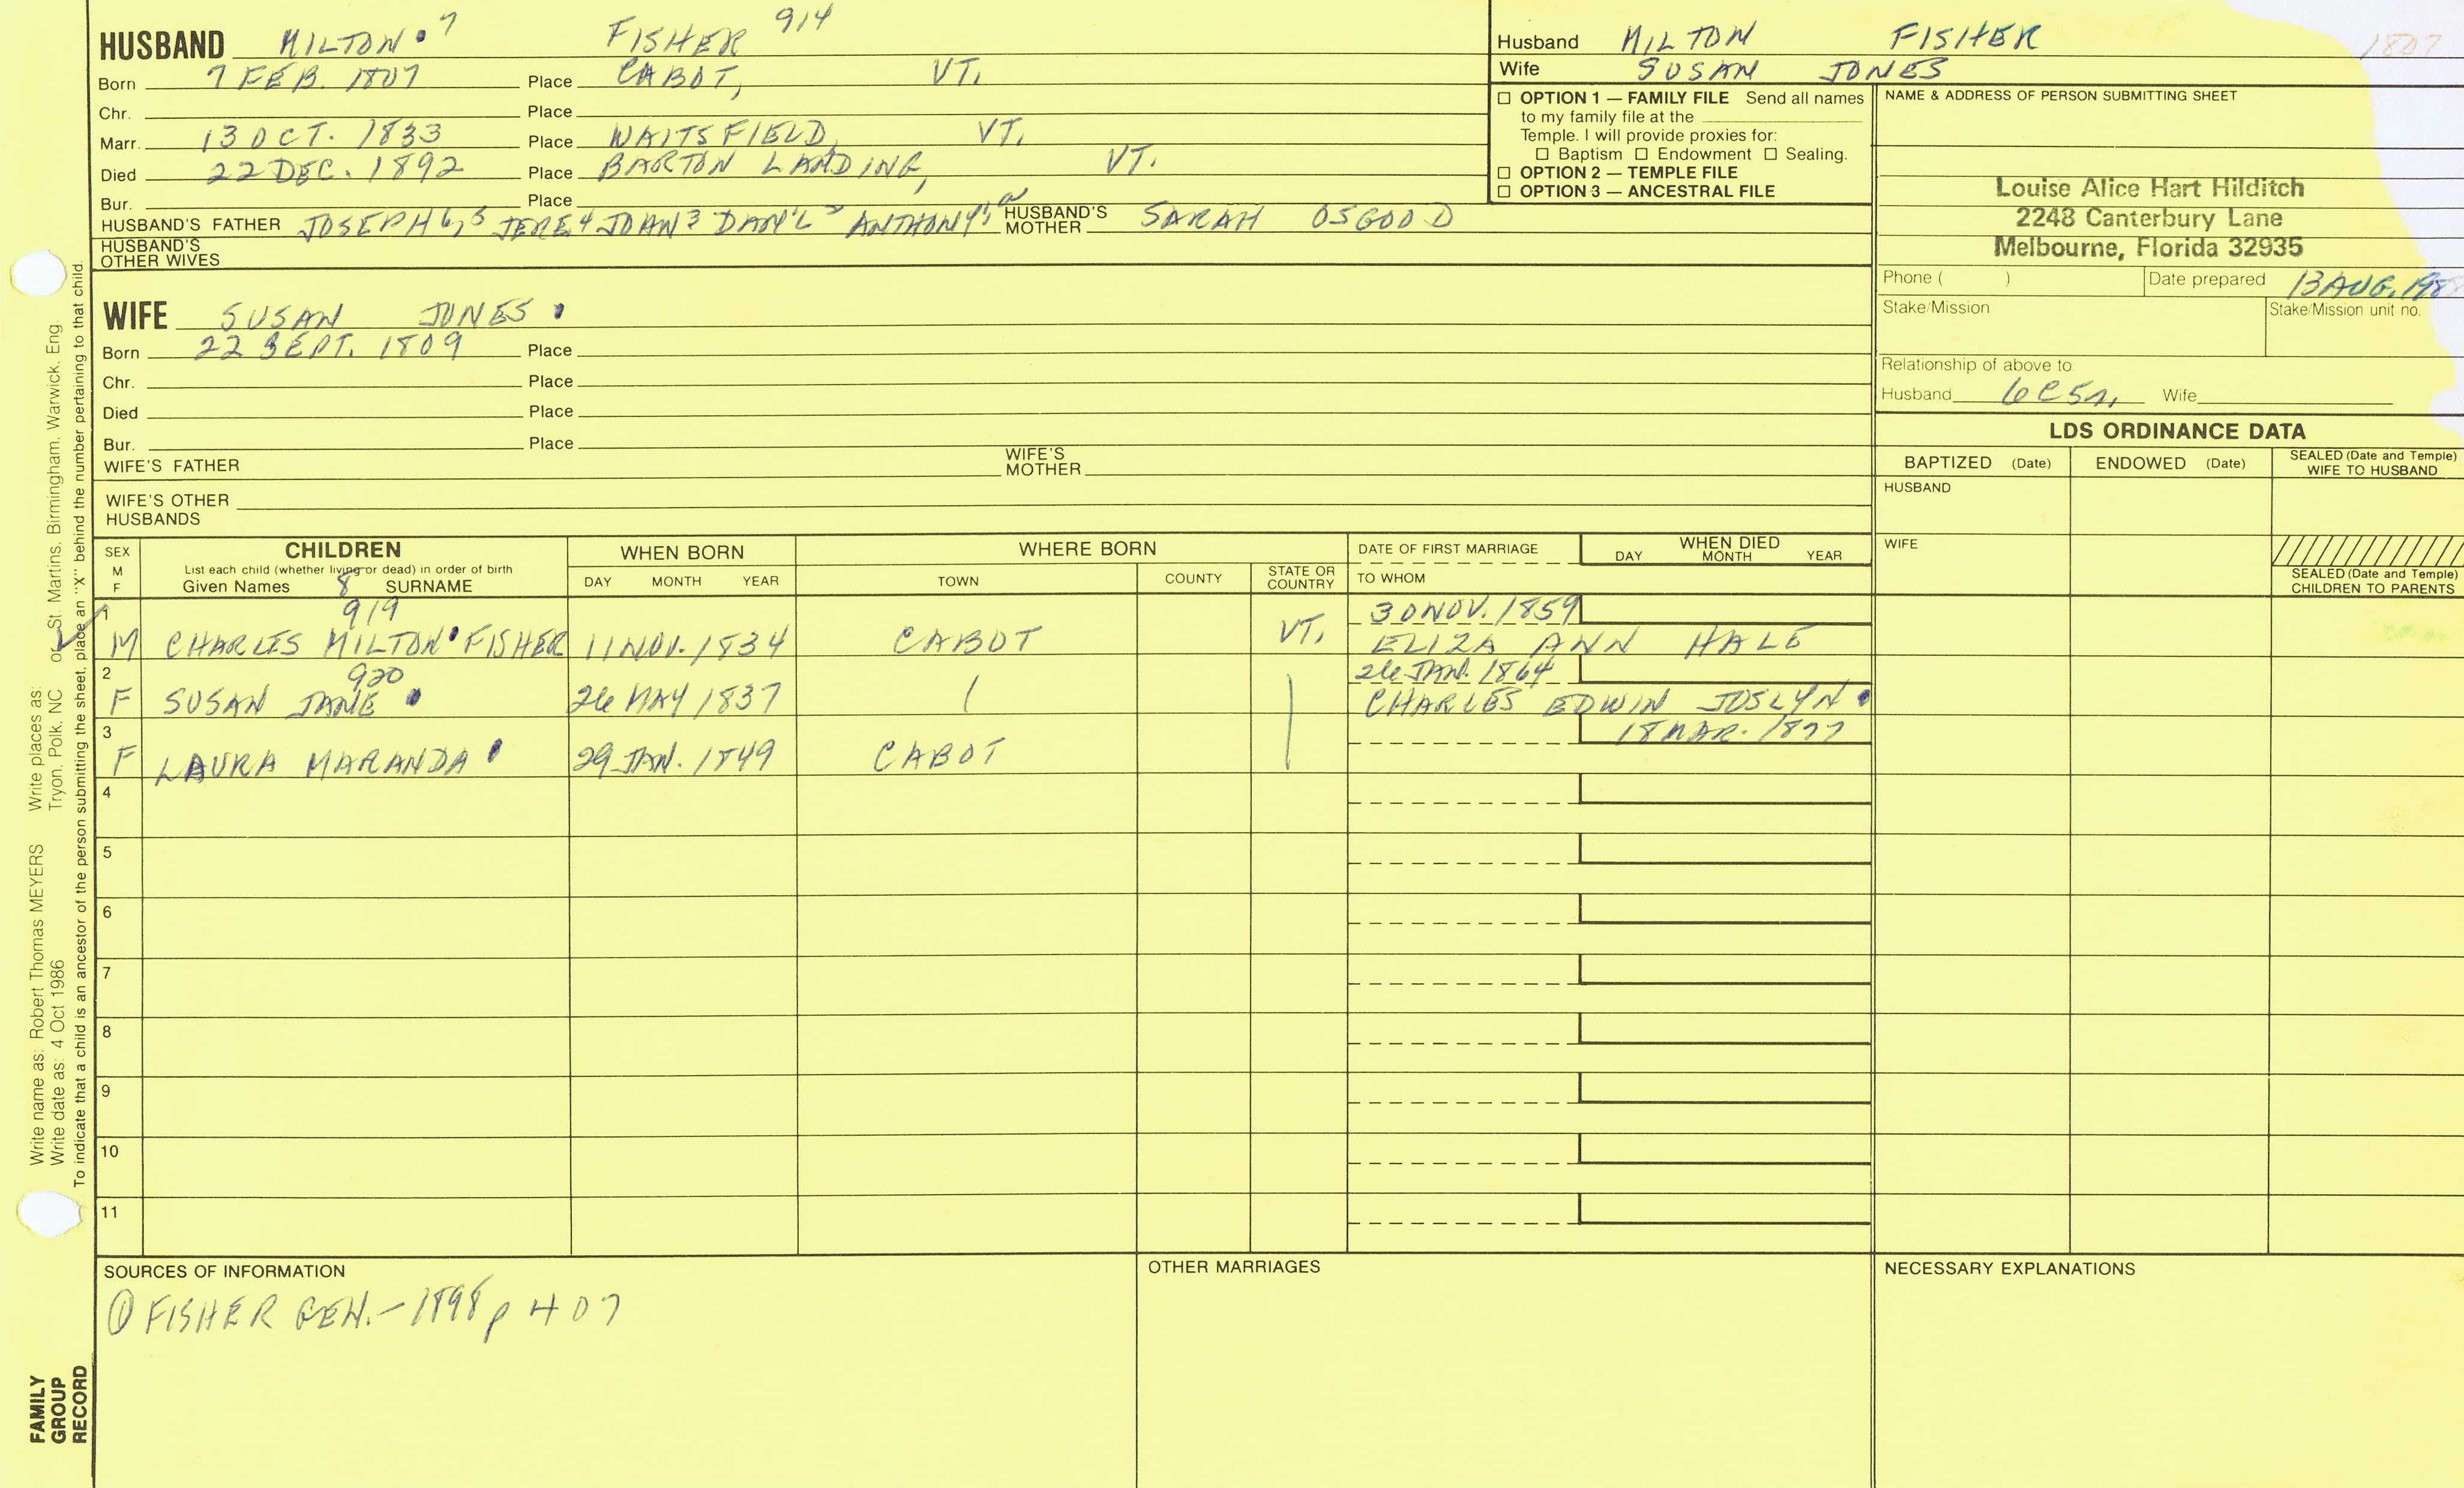 HUSBAND MILTON 7 FISHER 914
Born 7 FEB. 1807 Place CABOT, VT.
Chr. Place
Marr. 13 OCT. 1833 Place WAITSFIELD, VT.
Died 22 DEC. 1892 Place BARTON LANDING, VT.
Bur. Place
HUSBAND'S FATHER JOSEPH 6, 5 JERE 4 JOHN 3 DAN'L 2 ANTHONY 1, HUSBAND'S MOTHER SARAH OSGOOD
HUSBAND'S OTHER WIVES
Husband MILTON FISHER 1807
Wife SUSAN JONES
☐ OPTION 1 — FAMILY FILE Send all names
to my family file at the
Temple. I will provide proxies for:
☐ Baptism ☐ Endowment ☐ Sealing.
☐ OPTION 2 — TEMPLE FILE
☐ OPTION 3 — ANCESTRAL FILE
NAME & ADDRESS OF PERSON SUBMITTING SHEET
Louise Alice Hart Hilditch
2248 Canterbury Lane
Melbourne, Florida 32935
Phone ( ) Date prepared 13 AUG.
Stake/Mission Stake/Mission unit no.
Relationship of above to:
Husband 6C5r, Wife
WIFE SUSAN JONES
Born 22 SEPT. 1809 Place
Chr. Place
Died Place
Bur. Place
WIFE'S FATHER WIFE'S MOTHER
WIFE'S OTHER HUSBANDS
LDS ORDINANCE DATA
BAPTIZED (Date) ENDOWED (Date) SEALED (Date and Temple) WIFE TO HUSBAND
HUSBAND
WIFE
SEALED (Date and Temple) CHILDREN TO PARENTS
SEX M F
CHILDREN
List each child (whether living or dead) in order of birth
Given Names 8 SURNAME
WHEN BORN
DAY MONTH YEAR
WHERE BORN
TOWN COUNTY STATE OR COUNTRY
DATE OF FIRST MARRIAGE
TO WHOM
WHEN DIED
DAY MONTH YEAR
1 919 30 NOV. 1859
M CHARLES MILTON FISHER 11 NOV. 1834 CABOT VT. ELIZA ANN HALE
2 920 26 JAN. 1864
F SUSAN JANE 26 MAY 1837 CHARLES EDWIN JOSLYN
3 18 MAR. 1877
F LAURA MARANDA 29 JAN. 1849 CABOT
4
5
6
7
8
9
10
11
SOURCES OF INFORMATION
① FISHER GEN. - 1898 p 407
OTHER MARRIAGES
NECESSARY EXPLANATIONS
Write name as: Robert Thomas MEYERS Write places as:
Write date as: 4 Oct 1986 Tryon, Polk, NC or St. Martins, Birmingham, Warwick, Eng.
To indicate that a child is an ancestor of the person submitting the sheet, place an "X" behind the number pertaining to that child.
FAMILY
GROUP
RECORD